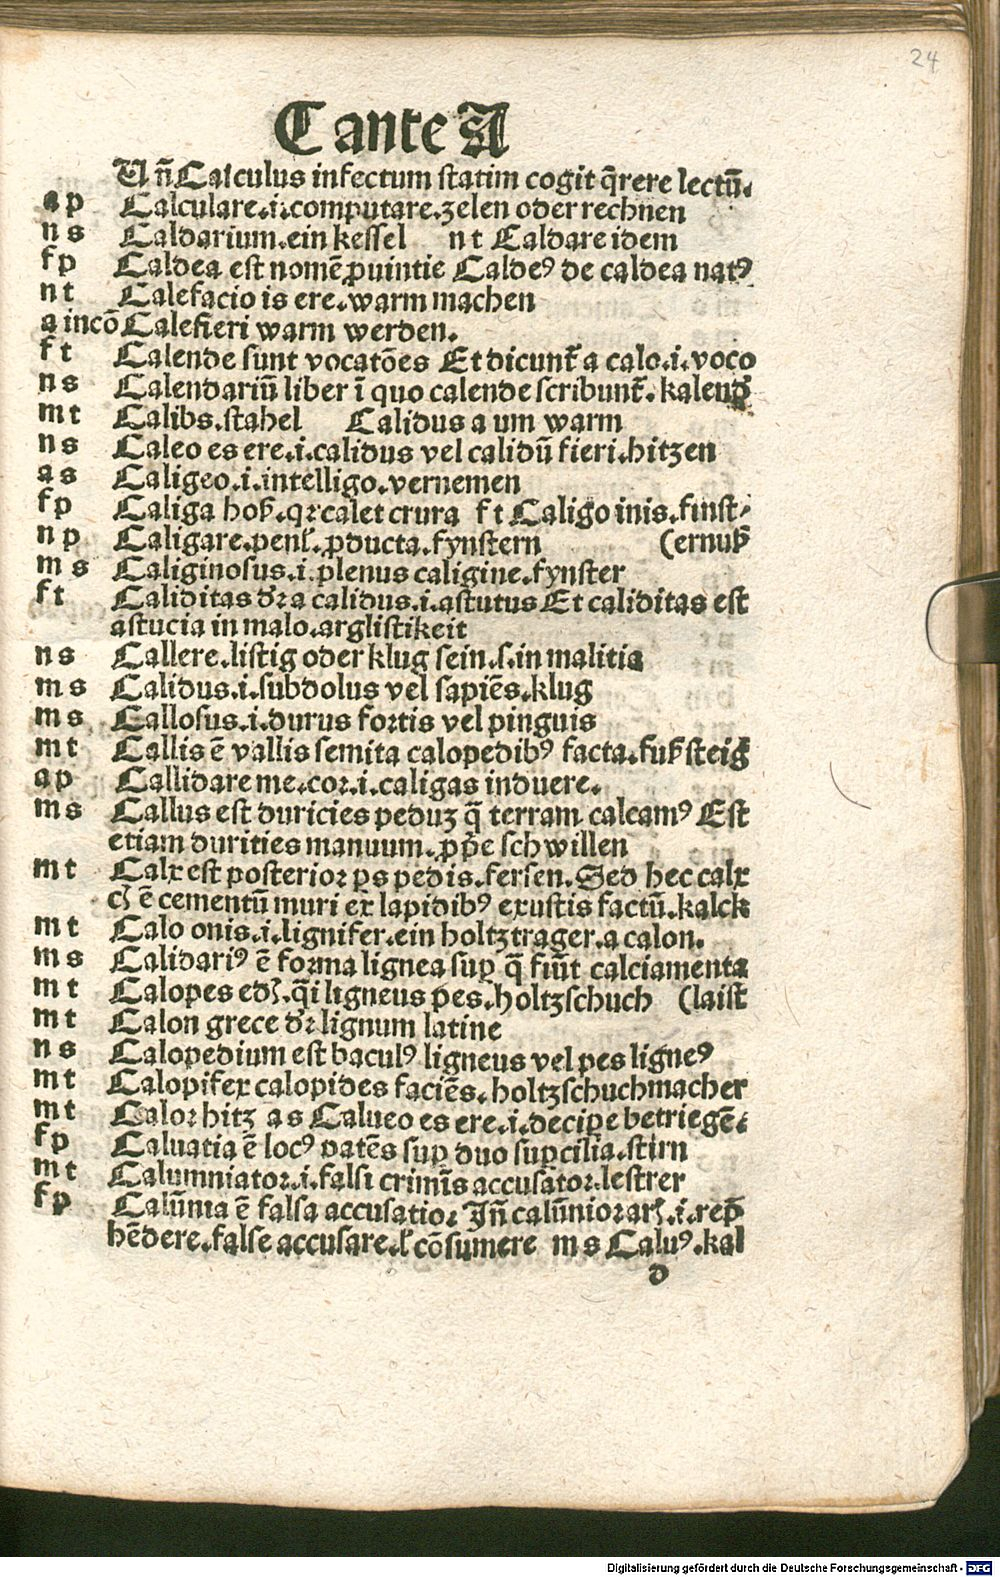 24
C ante A
Vñ Calculus infectum statim cogit q̄rere lectū.
a p Calculare.i.computare.zelen oder rechnen
n s Caldarium.ein kessel n t Caldare idem
f p Caldea est nomē ꝓuintie Caldeꝰ de caldea natꝰ
n t Calefacio is ere.warm machen
a incō Calefieri warm werden.
f t Calende sunt vocatōes Et dicunt̄ a calo.i.voco
n s Calendariū liber ī quo calende scribunt̄.kalend̄
m t Calibs.stahel Calidus a um warm
n s Caleo es ere.i.calidus vel calidū fieri.hitzen
a s Caligeo.i.intelligo.vernemen
f p Caliga hoß.qꝛ calet crura f t Caligo inis.finst⸗
n p Caligare.penl̄.ꝓducta.fynstern (ernuß
m s Caliginosus.i.plenus caligine.fynster
f t Caliditas dr̄ a calidus.i.astutus Et caliditas est
astucia in malo.arglistikeit
n s Callere.listig oder klug sein.s.in malitia
m s Calidus.i.subdolus vel sapiēs.klug
m s Callosus.i.durus fortis vel pinguis
m t Callis ē vallis semita calopedibꝰ facta.fußsteig
a p Callidare me.coꝛ.i.caligas induere.
m s Callus est duricies peduꝫ q̄ terram calcamꝰ Est
etiam durities manuum.ꝓp̄e schwillen
m t Calx est posterioꝛ ps pedis.fersen.Sed hec calx
cꝭ ē cementū muri ex lapidibꝰ exustis factū.kalck
m t Calo onis.i.lignifer.ein holtztrager.a calon.
m s Calidariꝰ ē forma lignea suꝑ q̄ fiūt calciamenta
m t Calopes edꝭ.q̄i ligneus pes.holtzschuch (laist
m t Calon grece dꝛ lignum latine
n s Calopedium est baculꝰ ligneus vel pes ligneꝰ
m t Calopifex calopides faciēs.holtzschuchmacher
m t Caloꝛ hitz a s Calueo es ere.i.decipe betriegē⸗
f p Caluatia ē locꝰ patēs suꝑ duo suꝑcilia.stirn
m t Calumniatoꝛ.i.falsi crimīs accusatoꝛ.lestrer
f p Calūnia ē falsa accusatioꝛ Jn̄ calūnioꝛ arꝭ.i.rep̄
hēdere.false accusare.ł cōsumere m s Caluꝰ.kal
d
Digitalisierung gefördert durch die Deutsche Forschungsgemeinschaft - DFG